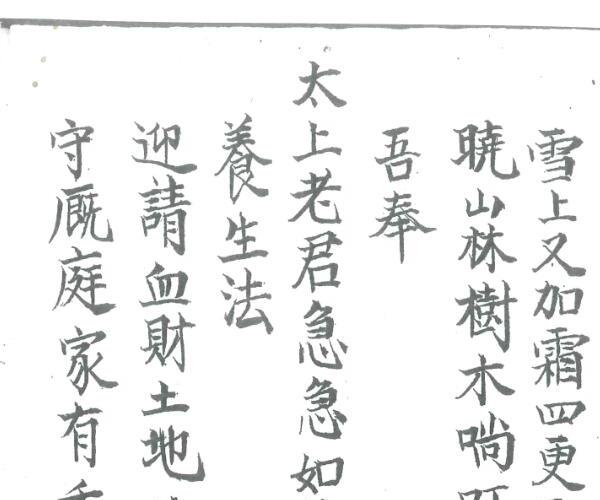 雪上又加霜四更
曉山林樹木啲
吾奉
太上老君急急如
養生法
迎請血財土地
守厩庭家有